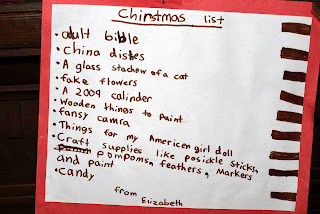 Chirstmas list
• adult bible
• China distes
• A glass stachew of a cat
• fake flowers
• A 2009 calinder
• Wooden things to paint
• fansy camra
• Things for my American girl doll
• Craft supplies like posickle sticks,
pompoms, feathers, markers
and paint
• Candy
from
Elizabeth